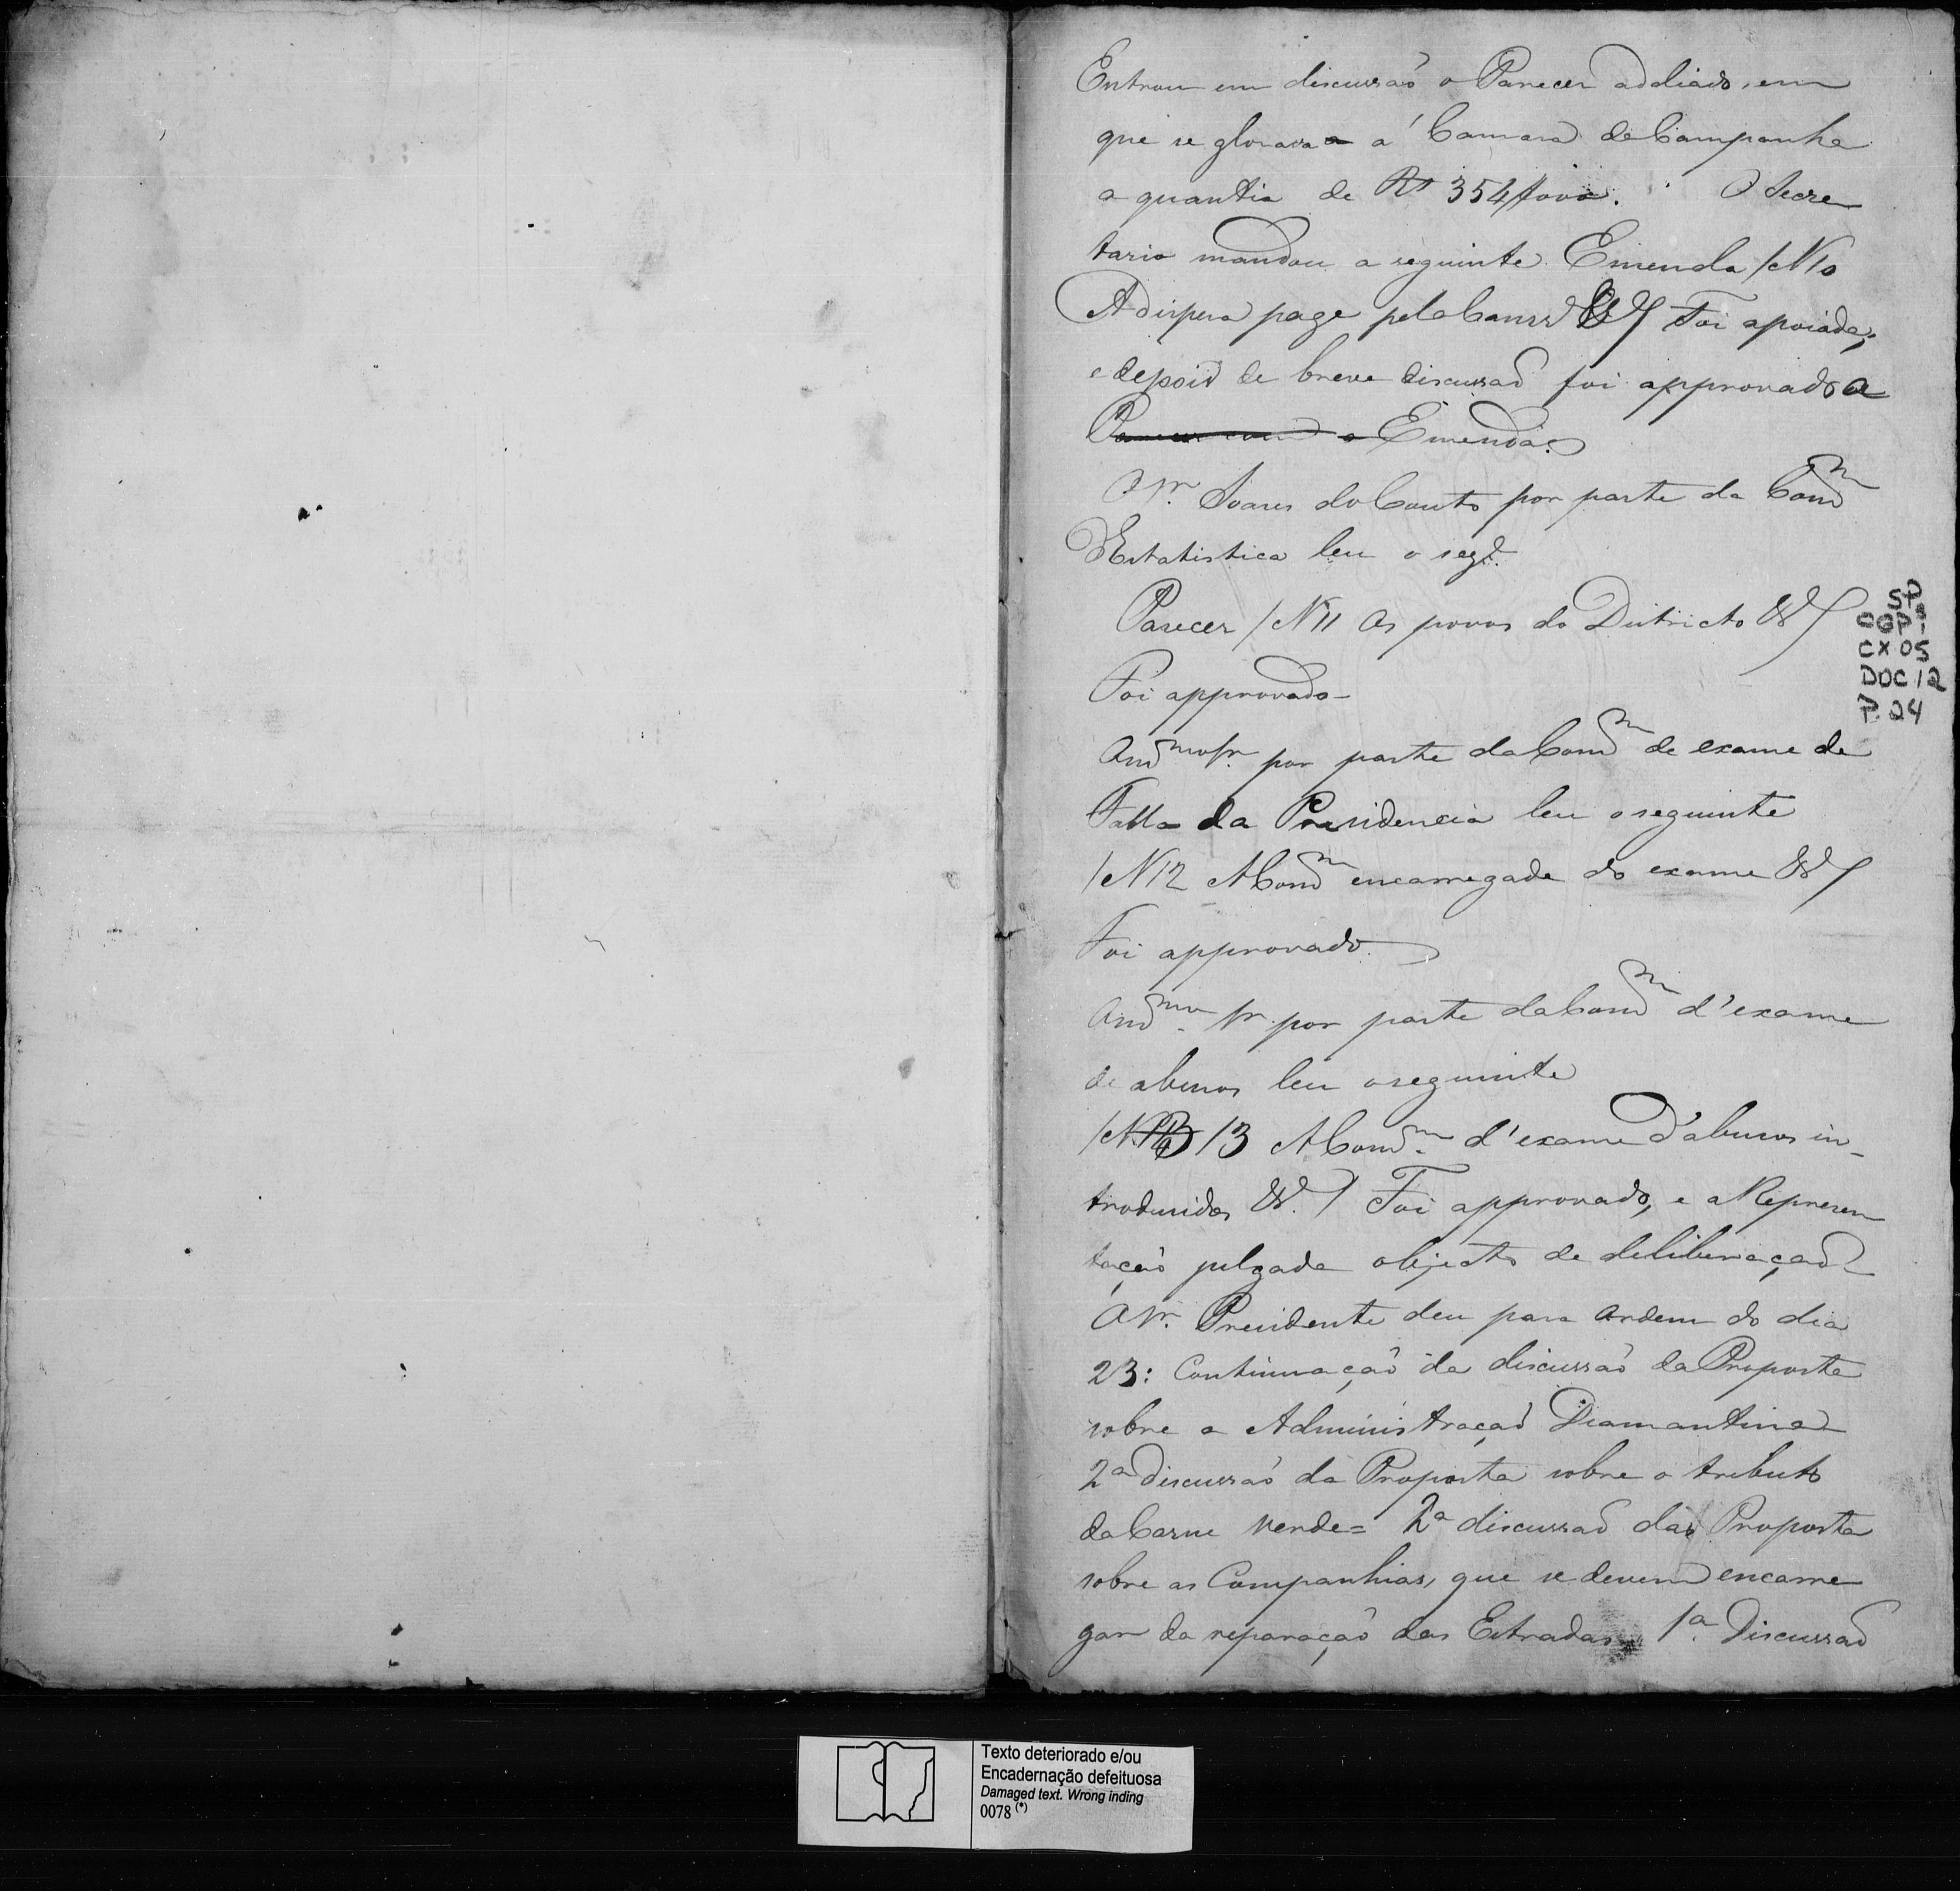 Entrou em discussaõ o Parecer addiado, em
que se glosava a' Camara da Campanha
a quantia de Rs 354$000. O Secre
tario mandou a seguinte Emenda /N 10
A dispesa page pela Camrª &ª/ Foi apoiada,
e depois de breve discussaõ foi approvado a
Parecer com a Emenda.
O Sr. Soares do Couto por parte da Comm
d'Estatistica leu o segte.
Parecer /N 11 Os povos do Districto &ª/
Foi approvado -
O mesmo Sr. por parte da Comm de exame de
Falla da Presidencia leu o seguinte
/N 12 A Comm encarregada do exame &ª/
Foi approvado.
O mesmo Sr. por parte da Comm d'exame
de abusos leu o seguinte
/N 13 A Comm d'exame d'abusos in-
troduzidos &ª./ Foi approvado, e a Represen
taçaõ julgada objecto de deliberaçaõ
O Sr. Presidente deu para ordem do dia
23: Continuaçaõ da discussaõ da Proposta
sobre a Administraçaõ Diamantina
2ª discussaõ da Proposta sobre o tributo
da Carne verde = 2ª discussaõ da Proposta
sobre as Companhias, que se devem encarre
gar da reparaçaõ das Estradas 1ª. Discussaõ
SPª
CGP1
CX 05
DOC 12
P. 04
Texto deteriorado e/ou
Encadernação defeituosa
Damaged text. Wrong inding
0078 (*)